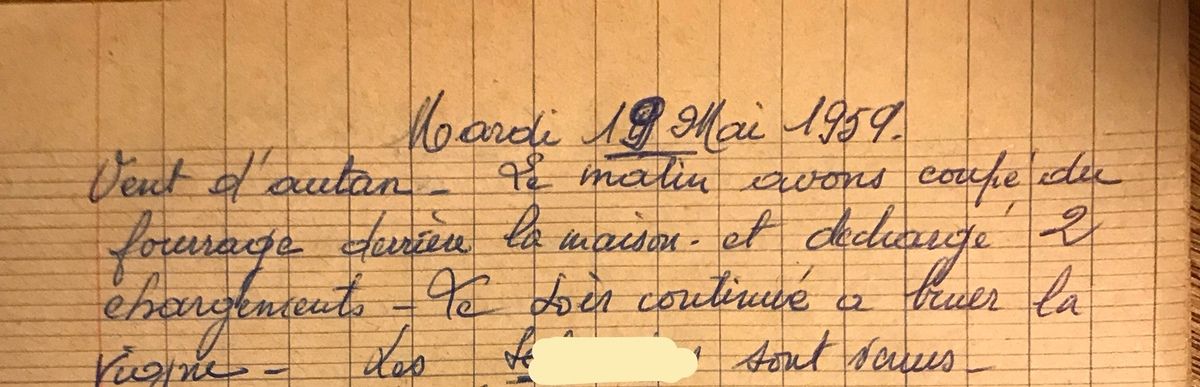 Mardi 19 Mai 1959.
Vent d'autan - Le matin avons coupé du
fourrage derrière la maison. et dechargé 2
chargements - Le soir continué a biner la
vigne - Les sont venus -